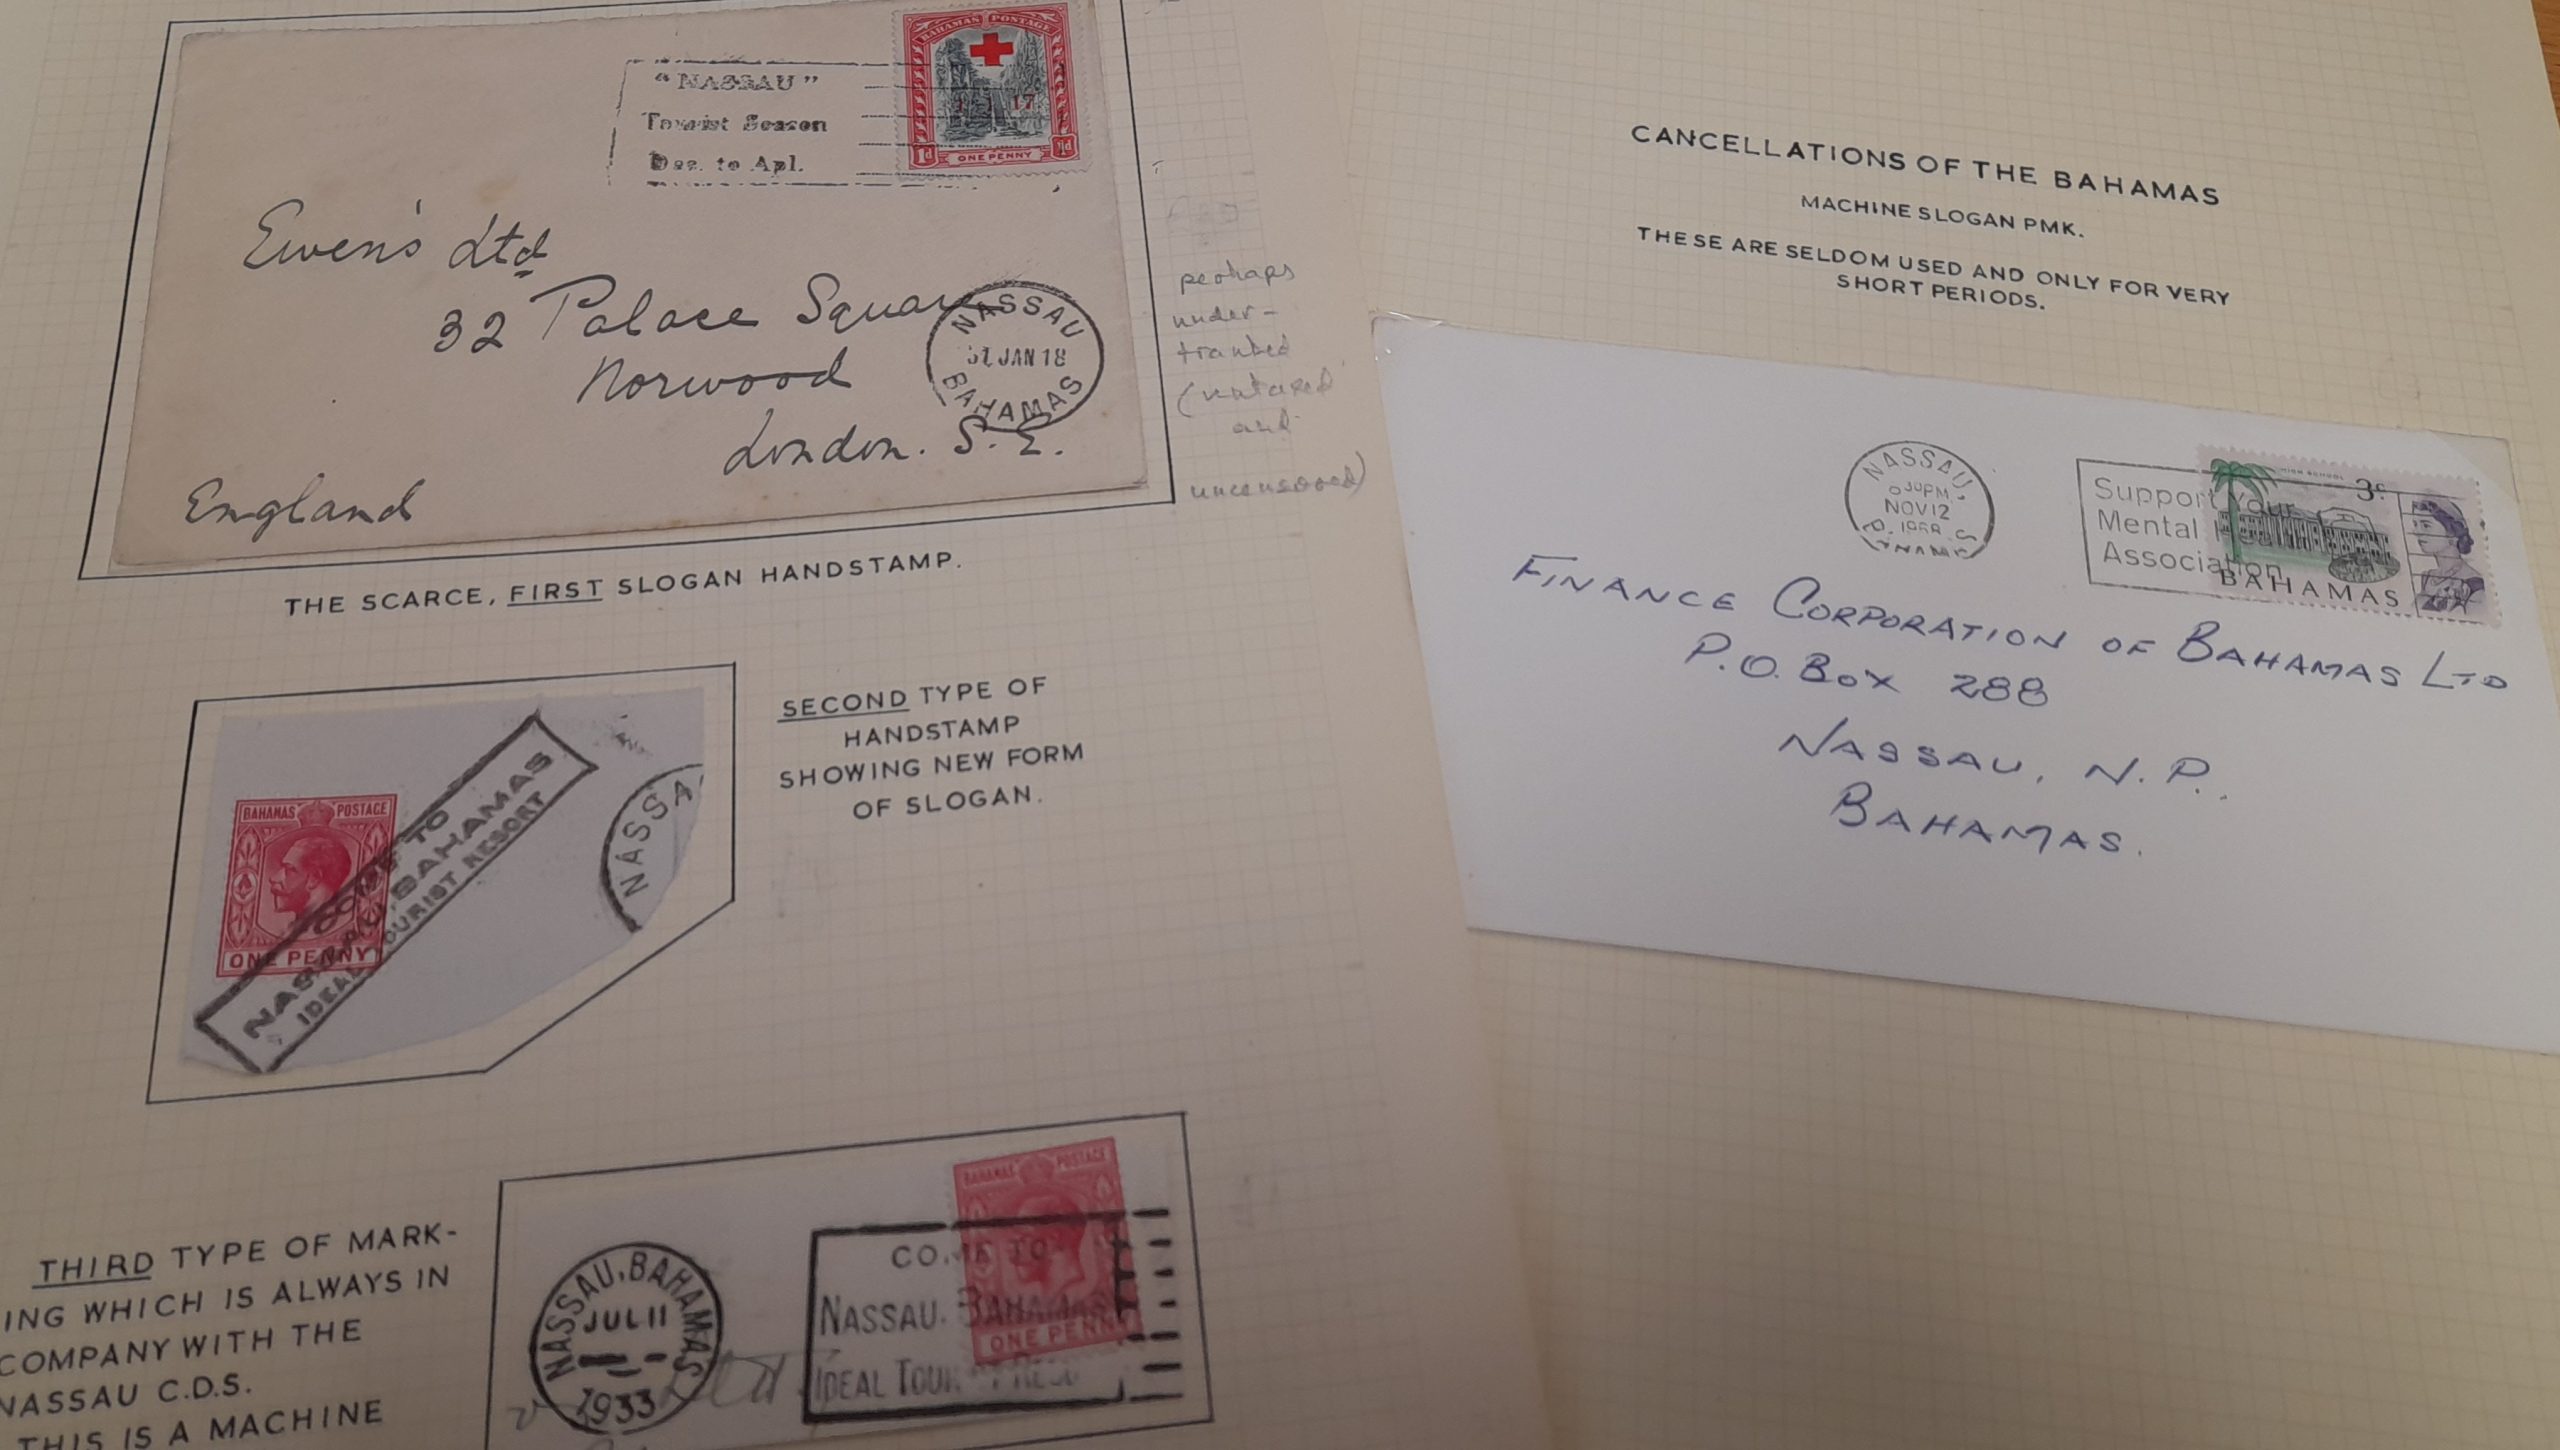 BAHAMAS POSTAGE
1 . 1 . 17
1d ONE PENNY 1d
"NASSAU"
Tourist Season
Dec. to Apl.
Ewen's Ltd
32 Palace Square
Norwood
London. S.E.
England
NASSAU
31 JAN 18
BAHAMAS
perhaps
under-
franked
(untaxed
and
uncensored)
THE SCARCE, FIRST SLOGAN HANDSTAMP.
BAHAMAS POSTAGE
ONE PENNY
COME TO
NASSAU, BAHAMAS
IDEAL TOURIST RESORT
NASSA
SECOND TYPE OF
HANDSTAMP
SHOWING NEW FORM
OF SLOGAN.
THIRD TYPE OF MARK-
ING WHICH IS ALWAYS IN
COMPANY WITH THE
NASSAU C.D.S.
THIS IS A MACHINE
NASSAU, BAHAMAS
JUL 11
1933
BAHAMAS POSTAGE
ONE PENNY
COME TO
NASSAU. BAHAMAS
IDEAL TOURIST RESO
CANCELLATIONS OF THE BAHAMAS
MACHINE SLOGAN PMK.
THESE ARE SELDOM USED AND ONLY FOR VERY
SHORT PERIODS.
NASSAU,
30PM
NOV 12
Support Your
Mental
Association
HIGH SCHOOL
3c
BAHAMAS
FINANCE CORPORATION OF BAHAMAS LTD
P.O. BOX 288
NASSAU, N.P.
BAHAMAS.